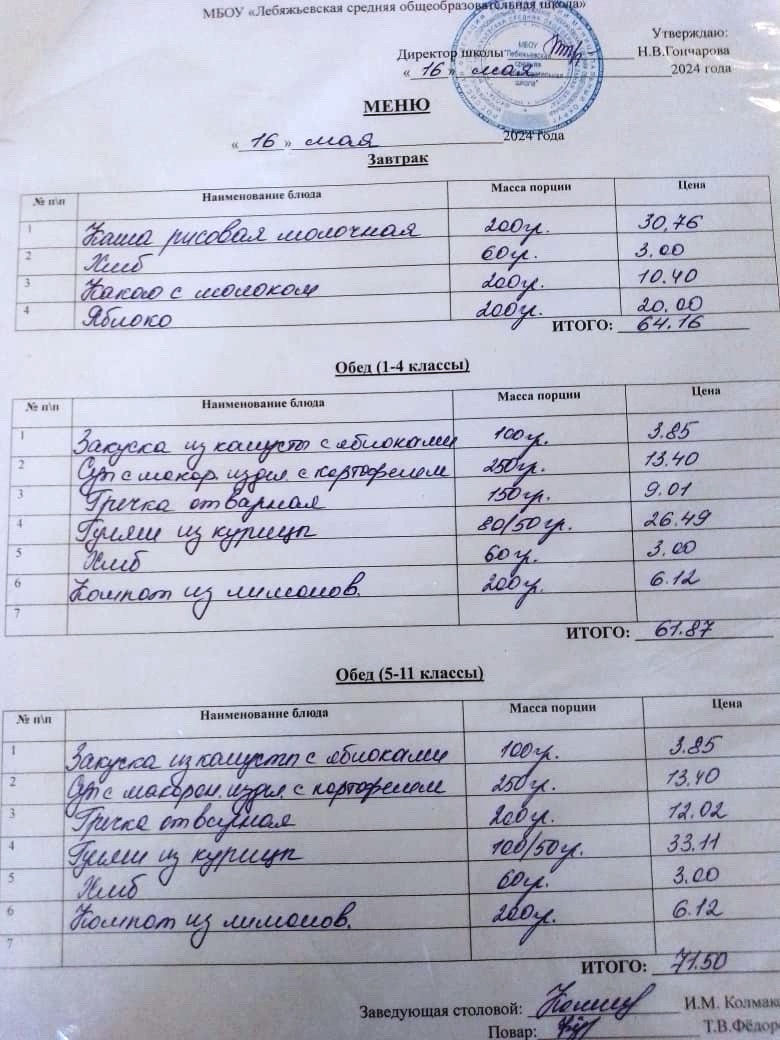 МБОУ «Лебяжьевская средняя общеобразовательная школа»
Утверждаю:
Директор школы Н.В.Гончарова
« 16 » мая 2024 года
МБОУ
"Лебяжьевская
средняя
школа"
МЕНЮ
« 16 » мая 2024 года
Завтрак
№ п\п Наименование блюда Масса порции Цена
1 Каша рисовая молочная 200гр. 30,76
2 Хлеб 60гр. 3.00
3 Какао с молоком 200гр. 10.40
4 Яблоко 200гр. 20.00
ИТОГО: 64.16
Обед (1-4 классы)
№ п\п Наименование блюда Масса порции Цена
1 Закуска из капусты с яблоками 100гр. 3.85
2 Суп с макар. издел. с картофелем 250гр. 13.40
3 Гречка отварная 150гр. 9.01
4 Гуляш из курицы 80/50гр. 26.49
5 Хлеб 60гр. 3.00
6 Компот из лимонов. 200гр. 6.12
7
ИТОГО: 61.87
Обед (5-11 классы)
№ п\п Наименование блюда Масса порции Цена
1 Закуска из капусты с яблоками 100гр. 3.85
2 Суп с макарон. издел. с картофелем 250гр. 13.40
3 Гречка отварная 200гр. 12.02
4 Гуляш из курицы 100/50гр. 33.11
5 Хлеб 60гр. 3.00
6 Компот из лимонов. 200гр. 6.12
7
ИТОГО: 71.50
Заведующая столовой: И.М. Колмак
Повар: Т.В.Фёдор